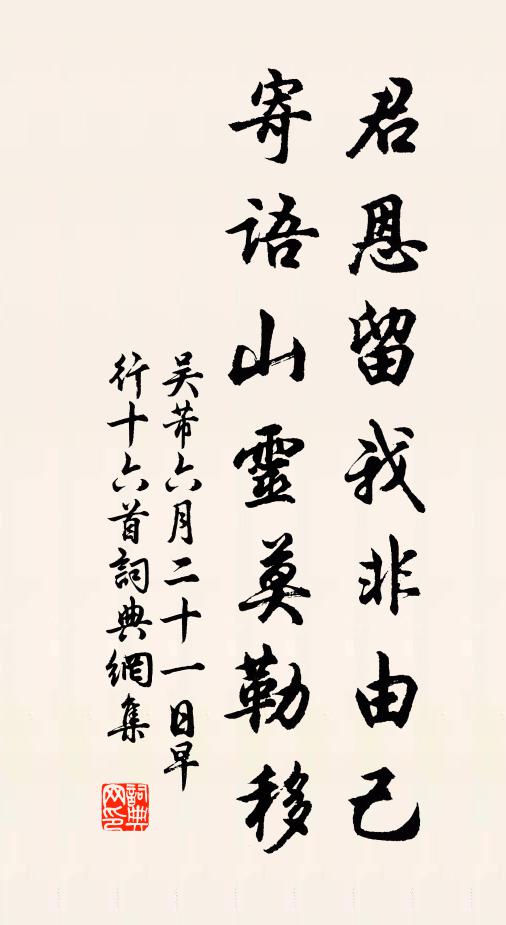 君恩留我非由己
寄語山靈莫勒移
吳芾六月二十一日早
行十六首詞典網集
詞典
网印